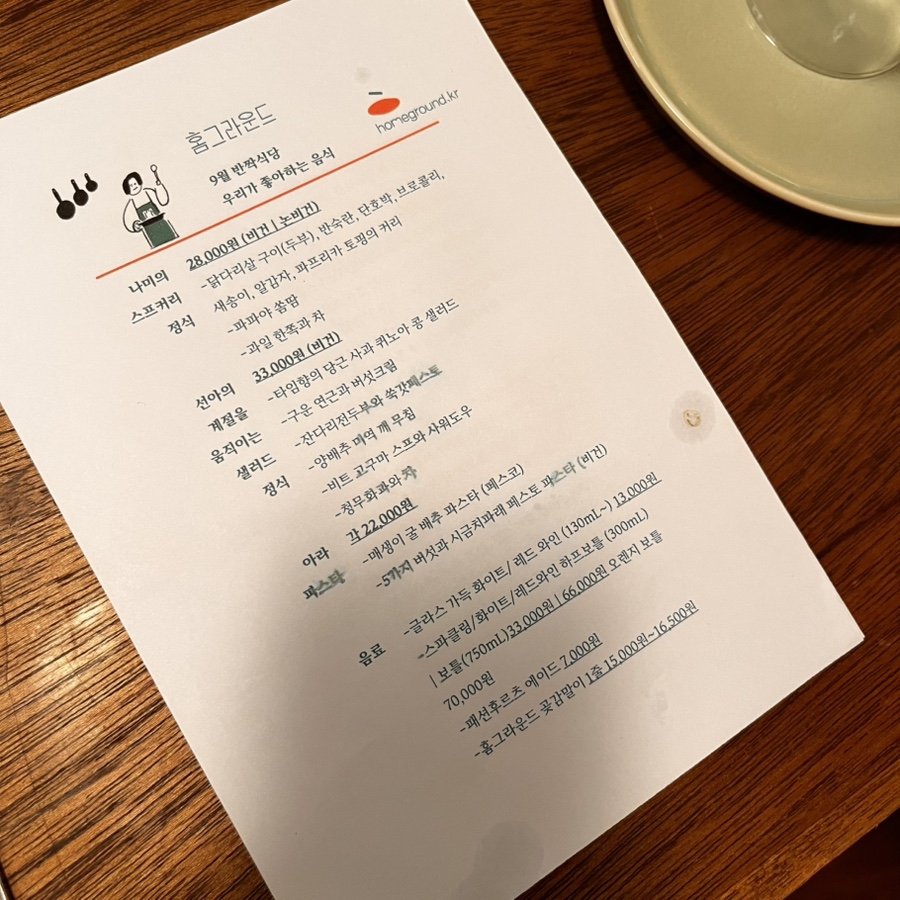 홈그라운드
homeground.kr
9월 반짝식당
우리가 좋아하는 음식
나미의
스프커리
정식
28,000원 (비건 | 논비건)
-닭다리살 구이(두부), 반숙란, 단호박, 브로콜리,
새송이, 알감자, 파프리카 토핑의 커리
-파파야 쏨땀
-과일 한쪽과 차
선아의
계절을
움직이는
샐러드
정식
33,000원 (비건)
-타임향의 당근 사과 퀴노아 콩 샐러드
-구운 연근과 버섯크림
-잔다리전두부와 쑥갓페스토
-양배추 미역 깨 무침
-비트 고구마 스프와 사워도우
-청무화과와 차
아라
파스타
각 22,000원
-매생이 굴 배추 파스타 (페스코)
-5가지 버섯과 시금치파래 페스토 파스타 (비건)
음료
-글라스 가득 화이트/ 레드 와인 (130mL~) 13,000원
-스파클링/화이트/레드와인 하프보틀 (300mL)
| 보틀(750mL)33,000원 | 66,000원 오렌지 보틀
70,000원
-패션후르츠 에이드 7,000원
-홈그라운드 곶감말이 1줄 15,000원~16,500원